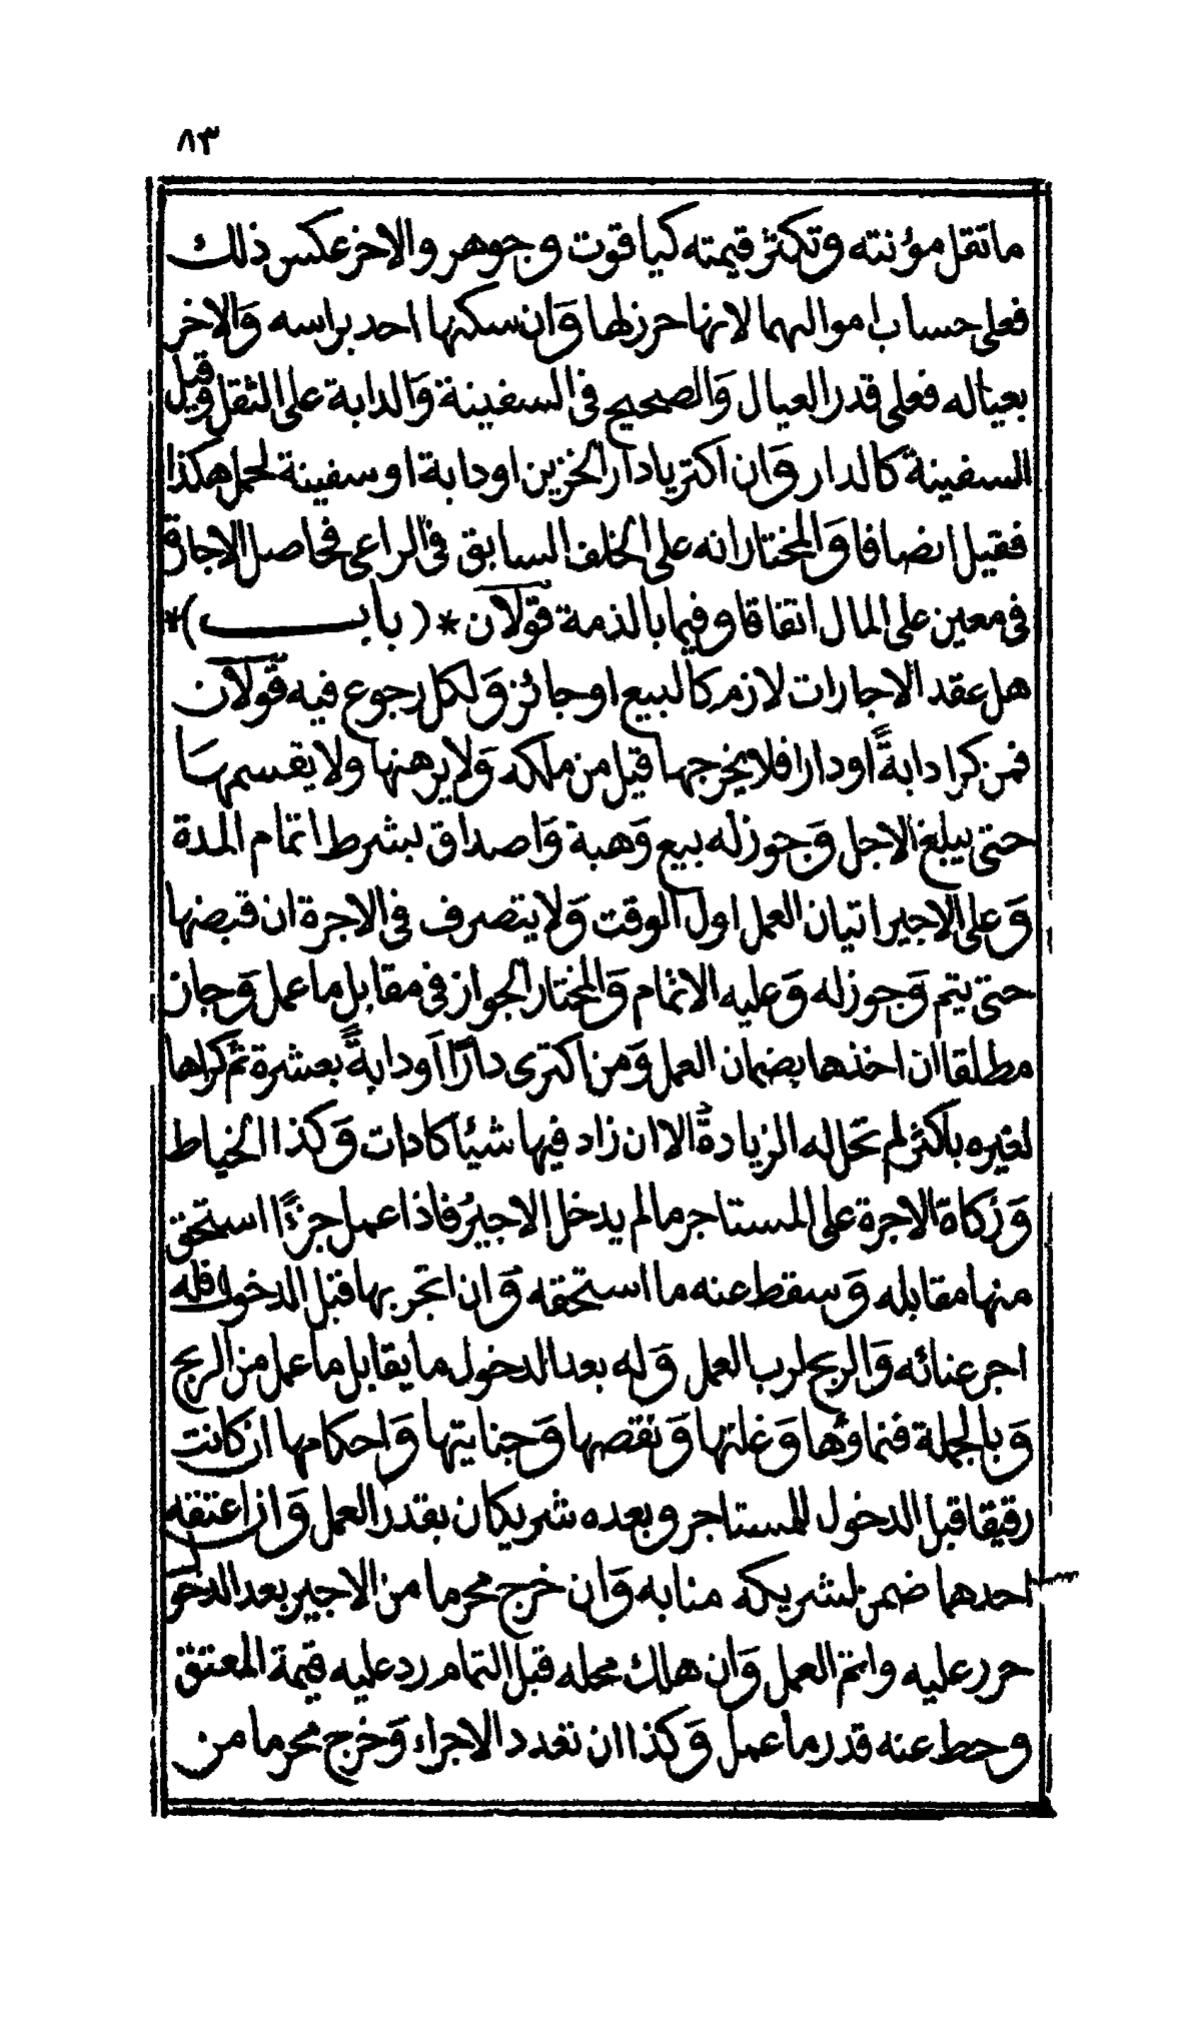 ٨٣
ما تقل مؤنته وتكثر قيمته كياقوت وجوهر والاخر عكس ذلك
فعلى حساب اموالهما لانها حرز لها وَان سكنها احد براسه وَالاخر
بعياله فعلى قدر العيال وَالصحيح في السفينة وَالدابة على الثقل وقيل
السفينة كالدار وَان اكتريا دار الخزين او دابة او سفينة لحمل هكذا
فقيل انصافا وَالمختار انه على الخلف السابق في الراعي فحاصل الاجارة
في معين على المال اتفاقا وفيما بالذمة قولان * ( باب ) *
هل عقد الاجارات لازم كالبيع او جائز وَلكل رجوع فيه قولان
فمن كرا دابةً او دارا فلا يخرجها قيل من ملكه وَلا يرهنها ولا يقسمها
حتى يبلغ الاجل وَجوز له بيع وَهبة وَاصداق بشرط اتمام المدة
وَعلى الاجير اتيان العمل اول الوقت وَلا يتصرف في الاجرة ان قبضها
حتى يتم وَجوز له وَعليه الاتمام وَالمختار الجواز في مقابل ما عمل وَجاز
مطلقا ان اخذها بضمان العمل وَمن اكترى دارًا اَو دابةً بعشرة ثم كراها
لغيره باكثر لم تحل له الزيادةُ الا ان زاد فيها شيئا كادات وَكذا الخياط
وَزكاة الاجرة على المستاجر ما لم يدخل الاجيرُ فاذا عمل جزءًا استحق
منها مقابله وَسقط عنه ما استحقه وَان اتجر بها قبل الدخول فله
اجر عنائه وَالربح لرب العمل وَله بعد الدخول ما يقابل ما عمل من الربح
وَبالجملة فنماؤها وَغلتها وَنقصها وَجنايتها وَاحكامها ان كانت
رقيقا قبل الدخول للمستاجر وبعده شريكان بقدر العمل وَان اعتقه
احدهما ضمن لشريكه منابه وَان خرج محرما من الاجير بعد الدخول
حرر عليه واتم العمل وَان هلك محله قبل التمام رد عليه قيمة المعتق
وحط عنه قدر ما عمل وَكذا ان تعدد الاجراء وَخرج محرما من